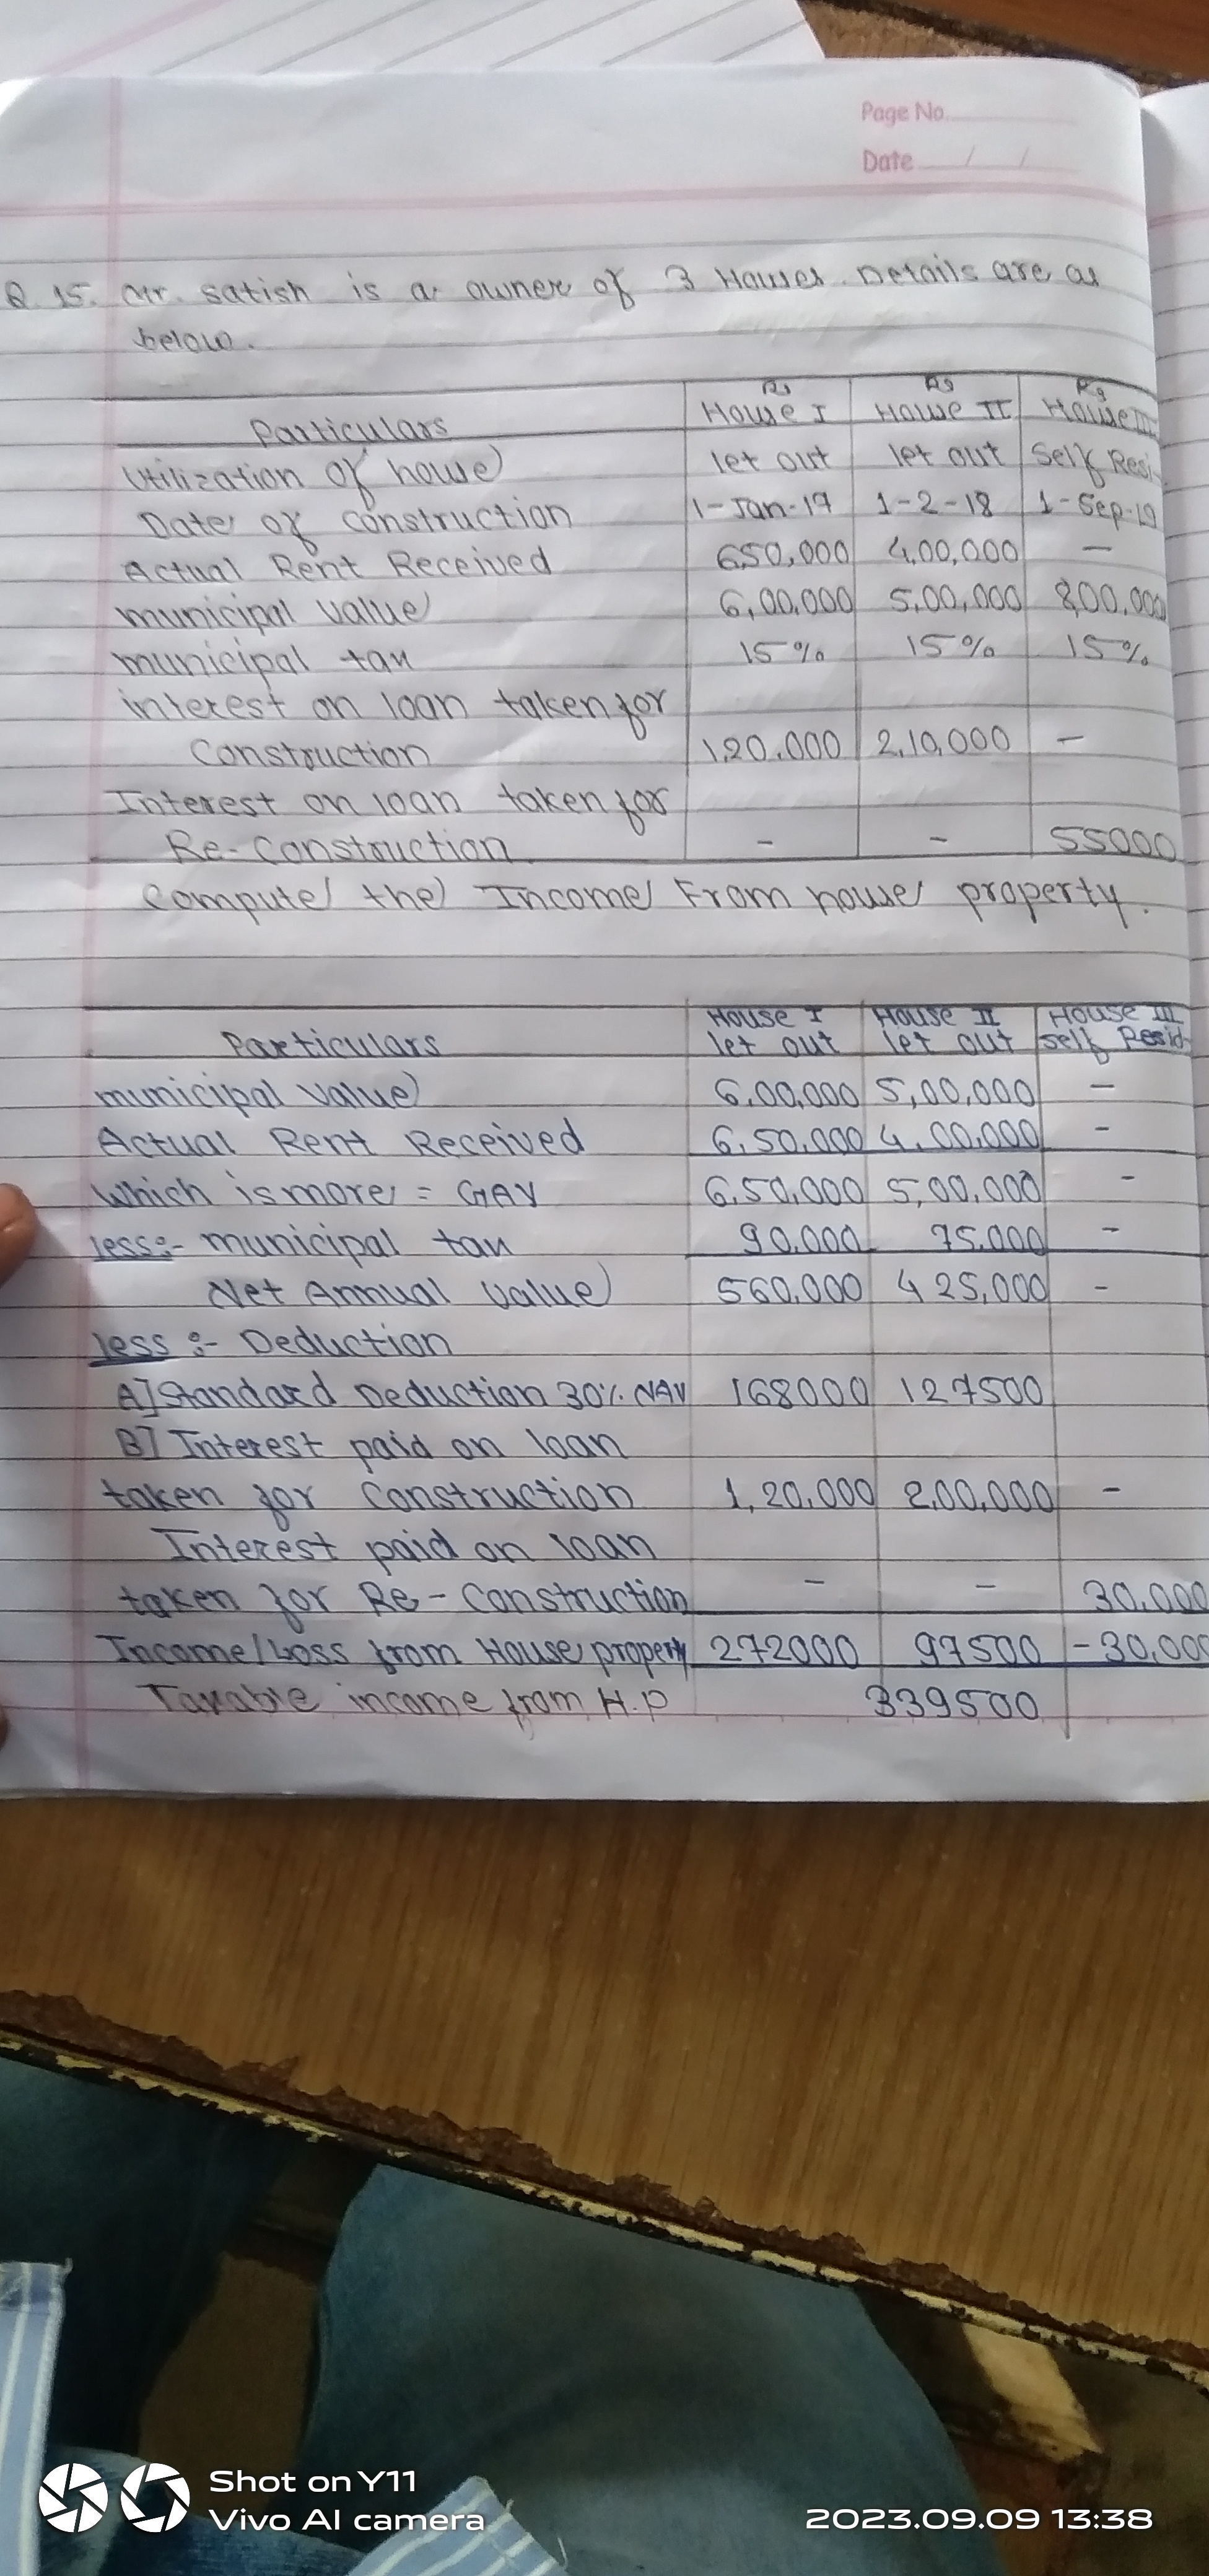 Page No.
Date / /
Q. 15. Mr. Satish is a owner of 3 Houses. Details are as
below.
Particulars Rs House I Rs House II Rs House III
Utilization of house let out let out Self Resi.
Date of construction 1-Jan-17 1-2-18 1-Sep-19
Actual Rent Received 650,000 4,00,000 —
municipal value 6,00,000 5,00,000 8,00,000
municipal tax 15% 15% 15%
interest on loan taken for
Construction 1,20,000 2,10,000 —
Interest on loan taken for
Re-Construction - - 55000
Compute the Income From house property.
Particulars House I let out House II let out House III self Resid-
municipal value 6,00,000 5,00,000 -
Actual Rent Received 6,50,000 4,00,000 -
which is more = GAV 6,50,000 5,00,000 -
less:- municipal tax 90,000 75,000 -
Net Annual value 560,000 4 25,000 -
less :- Deduction
A] Standard Deduction 30% NAV 168000 127500
B] Interest paid on loan
taken for Construction 1,20,000 2,00,000 -
Interest paid on loan
taken for Re-Construction - - 30,000
Income/Loss from House property 272000 97500 -30,000
Taxable income from H.P 339500
Shot on Y11
Vivo AI camera
2023.09.09 13:38